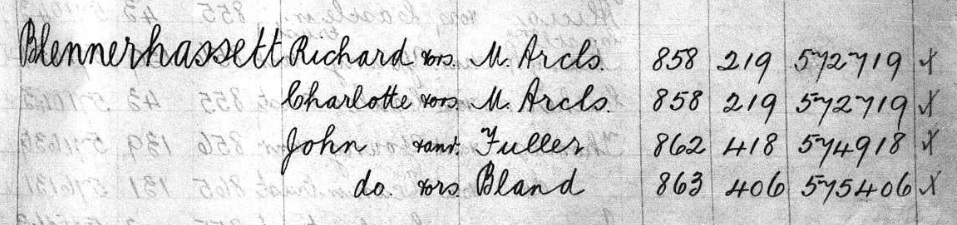 Blennerhassett Richard &ors. M. Arcls. 858 219 572719 X
Charlotte &ors. M. Arcls. 858 219 572719 X
John &anr. Fuller 862 418 574918 X
do. &ors Bland 863 406 575406 X